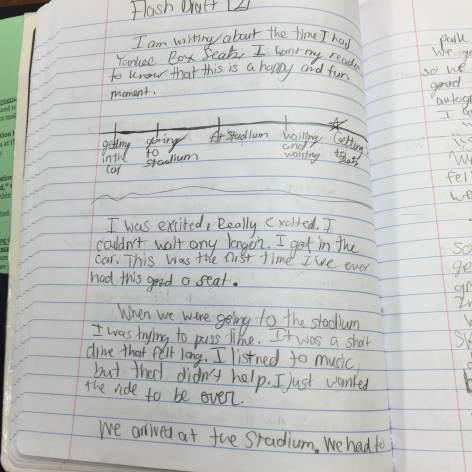 Flash Draft [2]
I am writing about the time I had
Yankee Box Seats. I want my reader
to know that this is a happy and fun
moment.
getting in the car
going to stadium
At Stadium
waiting and waiting
Getting to seats
I was excited, Really Excited. I
couldn't wait any longer. I got in the
car. This was the first time I've ever
had this good a seat.
When we were going to the stadium
I was trying to pass time. It was a short
drive that felt long. I listned to music,
but that didn't help. I just wanted
the ride to be over.
We arrived at the Stadium. We had to
park
we
so we
good
autog
I
fel
we